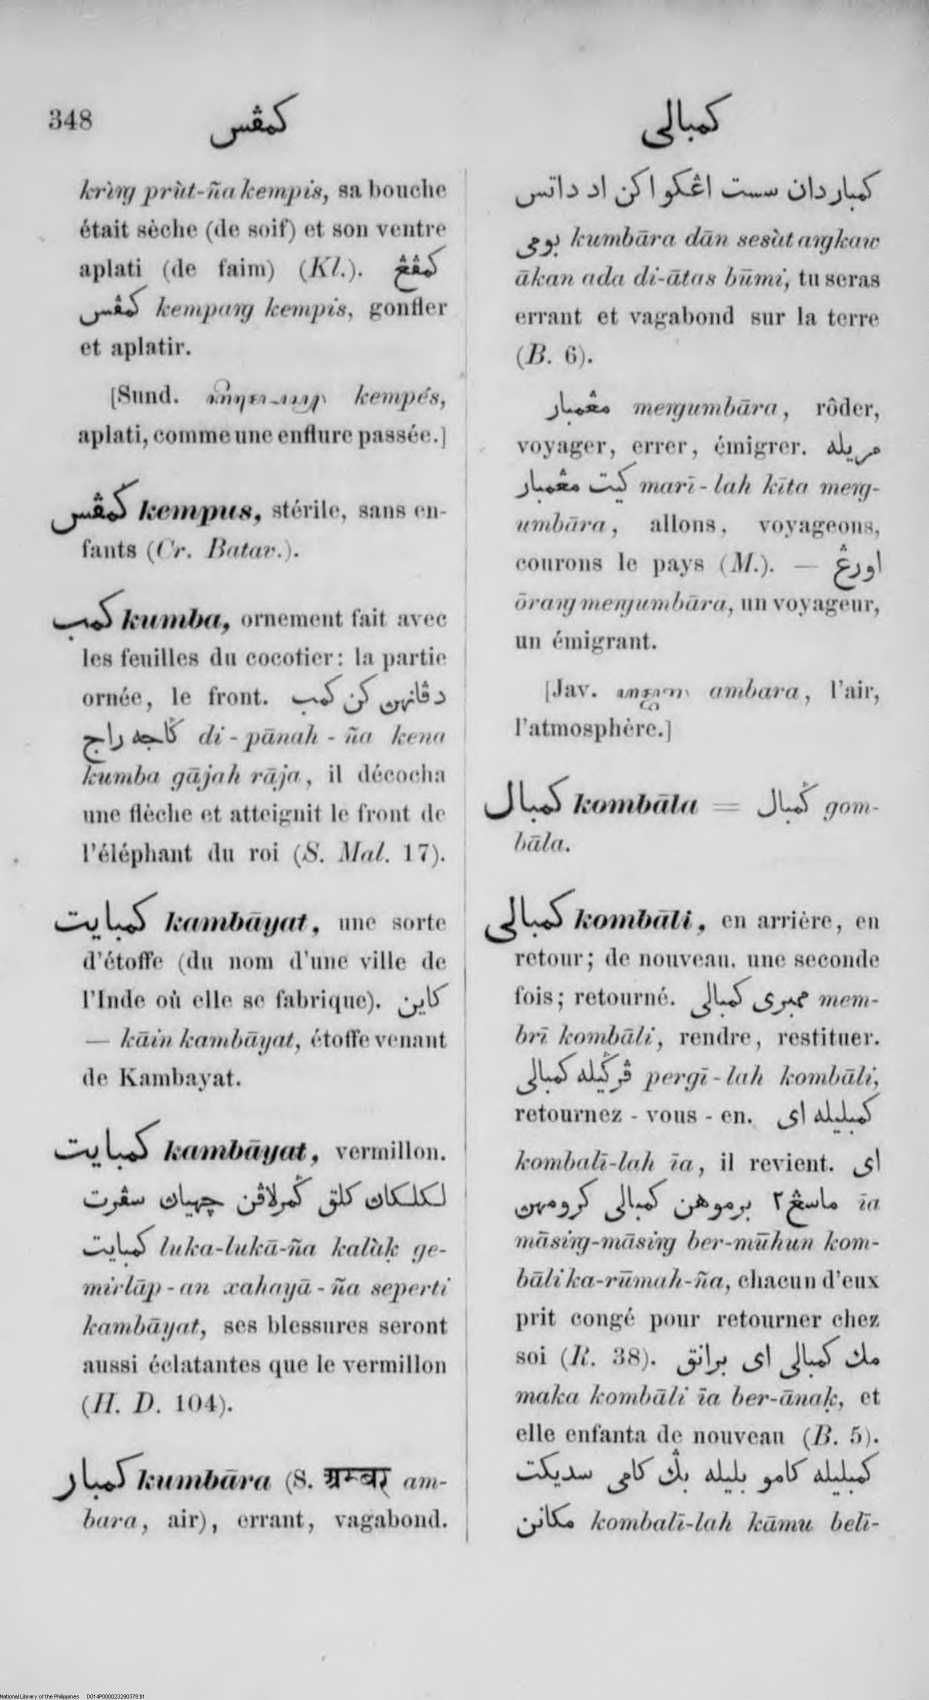 348
کمڤس
کمبالي
kriṅg prùt-ña kempis, sa bouche
était sèche (de soif) et son ventre
aplati (de faim) (Kl.). کمڤڠ
کمڤس kempaṅg kempis, gonfler
et aplatir.
[Sund. kempés,
aplati, comme une enflure passée.]
کمڤس kempus, stérile, sans en-
fants (Cr. Batav.).
کمب kumba, ornement fait avec
les feuilles du cocotier: la partie
ornée, le front. دڤانهن کن کمب
ݢاجه راج di-pānah-ña kena
kumba gājah rāja, il décocha
une flèche et atteignit le front de
l'éléphant du roi (S. Mal. 17).
کمبايت kambāyat, une sorte
d'étoffe (du nom d'une ville de
l'Inde où elle se fabrique). کاين
— kāin kambāyat, étoffe venant
de Kambayat.
کمبايت kambāyat, vermillon.
لکلکان کلق ݢمرلاڤن چهيان سڤرت
کمبايت luka-lukā-ña kalàḳ ge-
mirlāp-an xahayā-ña seperti
kambāyat, ses blessures seront
aussi éclatantes que le vermillon
(H. D. 104).
کمبار kumbāra (S. अम्बर am-
bara, air), errant, vagabond.
کمبار دان سست اڠکو اکن اد داتس
بومي kumbāra dān sesàt aṅgkaw
ākan ada di-ātas būmi, tu seras
errant et vagabond sur la terre
(B. 6).
مڠمبار meṅgumbāra, rôder,
voyager, errer, émigrer. مريله
کيت مڠمبار marī-lah kīta meṅg-
umbāra, allons, voyageons,
courons le pays (M.). — اورڠ
ōraṅg meṅgumbāra, un voyageur,
un émigrant.
[Jav. ambara, l'air,
l'atmosphère.]
کمبال kombāla = ݢمبال gom-
bāla.
کمبالي kombāli, en arrière, en
retour; de nouveau, une seconde
fois; retourné. ممبري کمبالي mem-
brī kombāli, rendre, restituer.
ڤرݢيله کمبالي pergī-lah kombāli,
retournez-vous-en. کمبليله اي
kombalī-lah īa, il revient. اي
ماسڠ٢ برموهن کمبالي کرومهن īa
māsiṅg-māsiṅg ber-mūhun kom-
bāli ka-rūmah-ña, chacun d'eux
prit congé pour retourner chez
soi (R. 38). مك کمبالي اي برانق
maka kombāli īa ber-ānaḳ, et
elle enfanta de nouveau (B. 5).
کمبليله کامو بليله بݢ کامي سديکت
مکانن kombalī-lah kāmu belī-
National Library of the Philippines